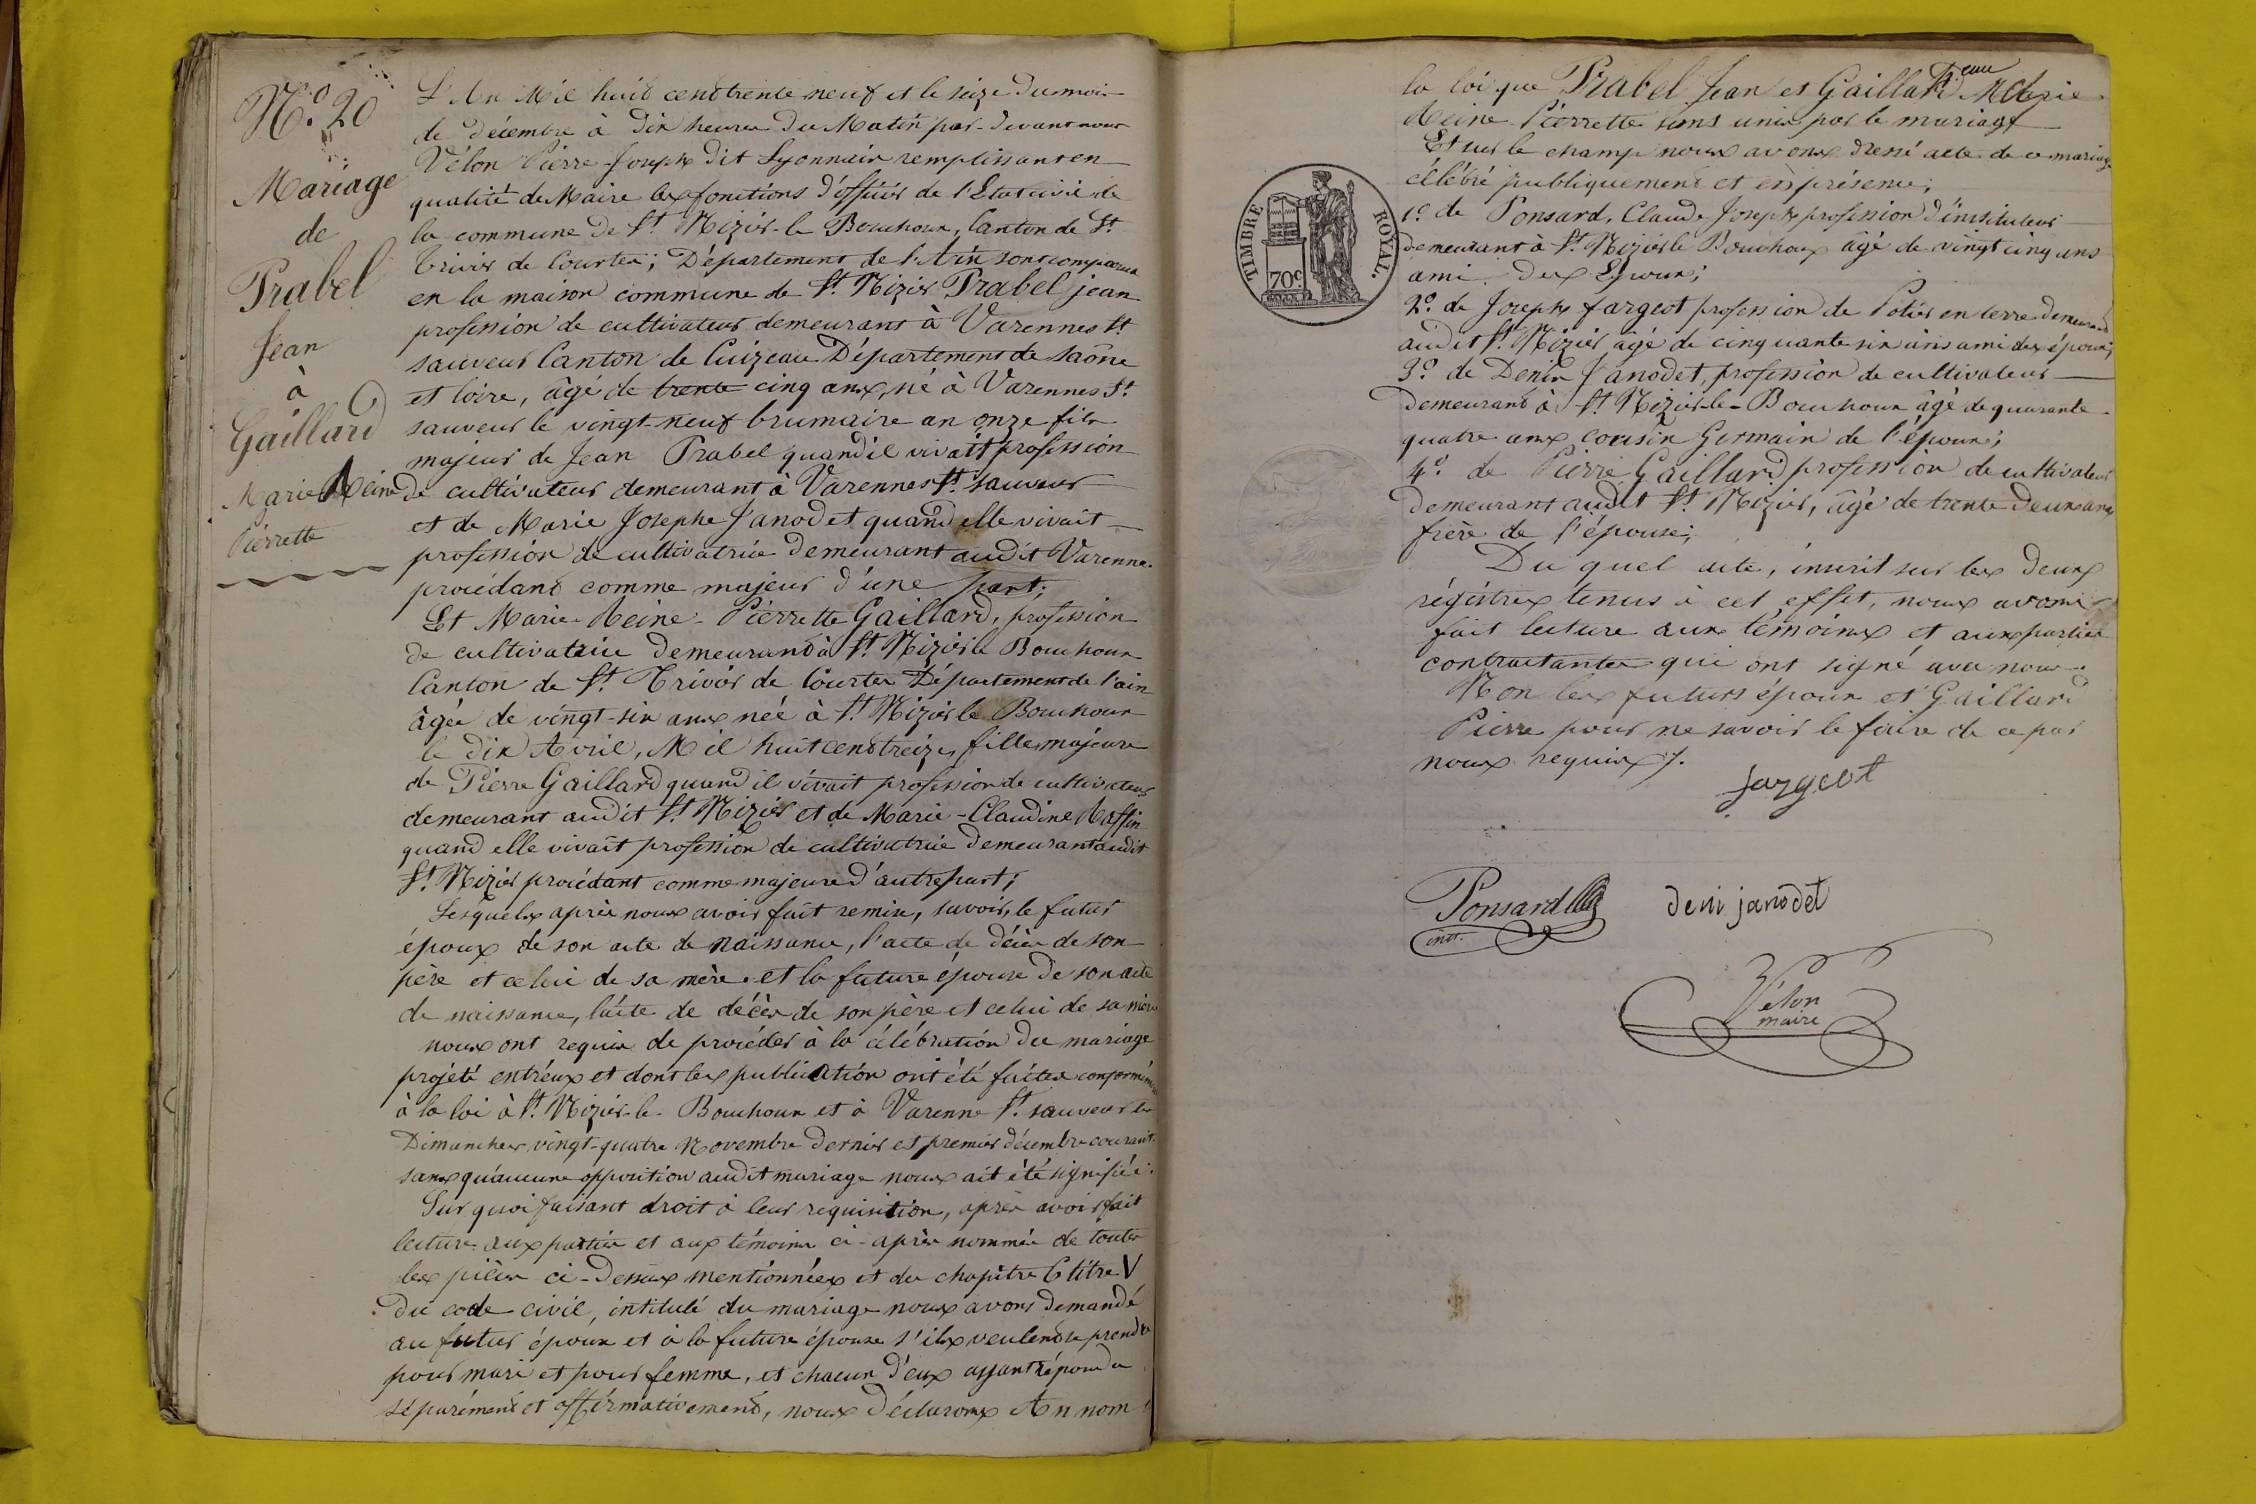 N.o 20
Mariage
de
Prabel
Jean
à
Gaillard
Marie Reine
Pierrette
L'An Mil huit cent trente neuf et le seize du mois
de décembre à dix heures du Matin par-devant nous
Vélon Pierre-Joseph dit Lyonnais remplissant en
qualité de Maire les fonctions d'officier de l'Etat civil de
la commune de St. Nizier-le Bouchoux, Canton de St.
Trivier de Courtes; Département de l'Ain sont comparus
en la maison commune de St. Nizier Prabel jean
profession de cultivateur demeurant à Varennes St
sauveur Canton de Cuizeau Département de Saône
et loire, âgé de trente cinq ans, né à Varennes St.
sauveur le vingt-neuf brumaire an onze fils
majeur de Jean Prabel quand il vivait profession
de cultivateur demeurant à Varennes St. sauveur
et de Marie Josephe Janodet quand elle vivait
profession de cultivatrice demeurant audit Varenne.
procédant comme majeur d'une part;
Et Marie-Reine-Pierrette Gaillard, profession
de cultivatrice demeurant à St. Nizier le Bouchoux
Canton de St. Trivier de Courtes Département de l'ain
âgée de vingt-six ans née à St. Nizier le Bouchoux
le dix Avril, Mil huit cent treize, fille majeure
de Pierre Gaillard quand il vivait profession de cultivateur
demeurant audit St. Nizier et de Marie-Claudine Raffin
quand elle vivait profession de cultivatrice demeurant audit
St. Nizier procédant comme majeure d'autre part;
Lesquels après nous avoir fait remise, savoir, le futur
époux de son acte de naissance, l'acte de décès de son
père et celui de sa mère. et la future épouse de son acte
de naissance, l'acte de décès de son père et celui de sa mère
nous ont requis de procéder à la célébration du mariage
projeté entr'eux et dont les publication ont été faites conformém
à la loi à St. Nizier-le-Bouchoux et à Varenne St. sauveur les
Dimanches vingt-quatre Novembre dernier et premier décembre courant.
sans qu'aucune opposition audit mariage nous ait été signifiée.
Sur quoi faisant droit à leur requisition, après avoir fait
lecture aux parties et aux témoins ci-après nommés de toutes
les pièces ci-dessus mentionnées et du chapitre 6 titre V
du code civil, intitulé du mariage nous avons demandé
au futur époux et à la future épouse s'ils veulent se prendre
pour mari et pour femme, et chacun d'eux ayant répondu
séparément et affirmativement, nous déclarons Au nom
la loi que Prabel Jean et Gaillard Marie
Reine-Pierrette sont unis par le mariage
Et sur le champ nous avons dressé acte de ce mariage
célébré publiquement et en présence;
1o de Ponsard, Claude Joseph profession d'instituteur
demeurant à St. Nizier le Bouchoux âgé de vingt cinq ans
ami des Epoux;
2o. de Joseph fargeot profession de Potier en terre demeurant
audit St. Nizier âgé de cinquante six ans ami des époux;
3o. de Denis Janodet, profession de cultivateur
demeurant à St Nizier-le-Bouchoux âgé de quarante
quatre ans, cousin Germain de l'époux;
4o. de Pierre Gaillard profession de cultivateur
demeurant audit St. Nizier, âgé de trente deux ans
frère de l'épouse;
Du quel acte, inscrit sur les deux
régistres tenus à cet effet, nous avons
fait lecture aux témoins et aux parties
contractantes qui ont signé avec nous.
Non les futurs époux et Gaillard
Pierre pour ne savoir le faire de ce par
nous requis /.
TIMBRE ROYAL.
70c
fargeot
Ponsard
inst.
deni janodet
Vélon
maire